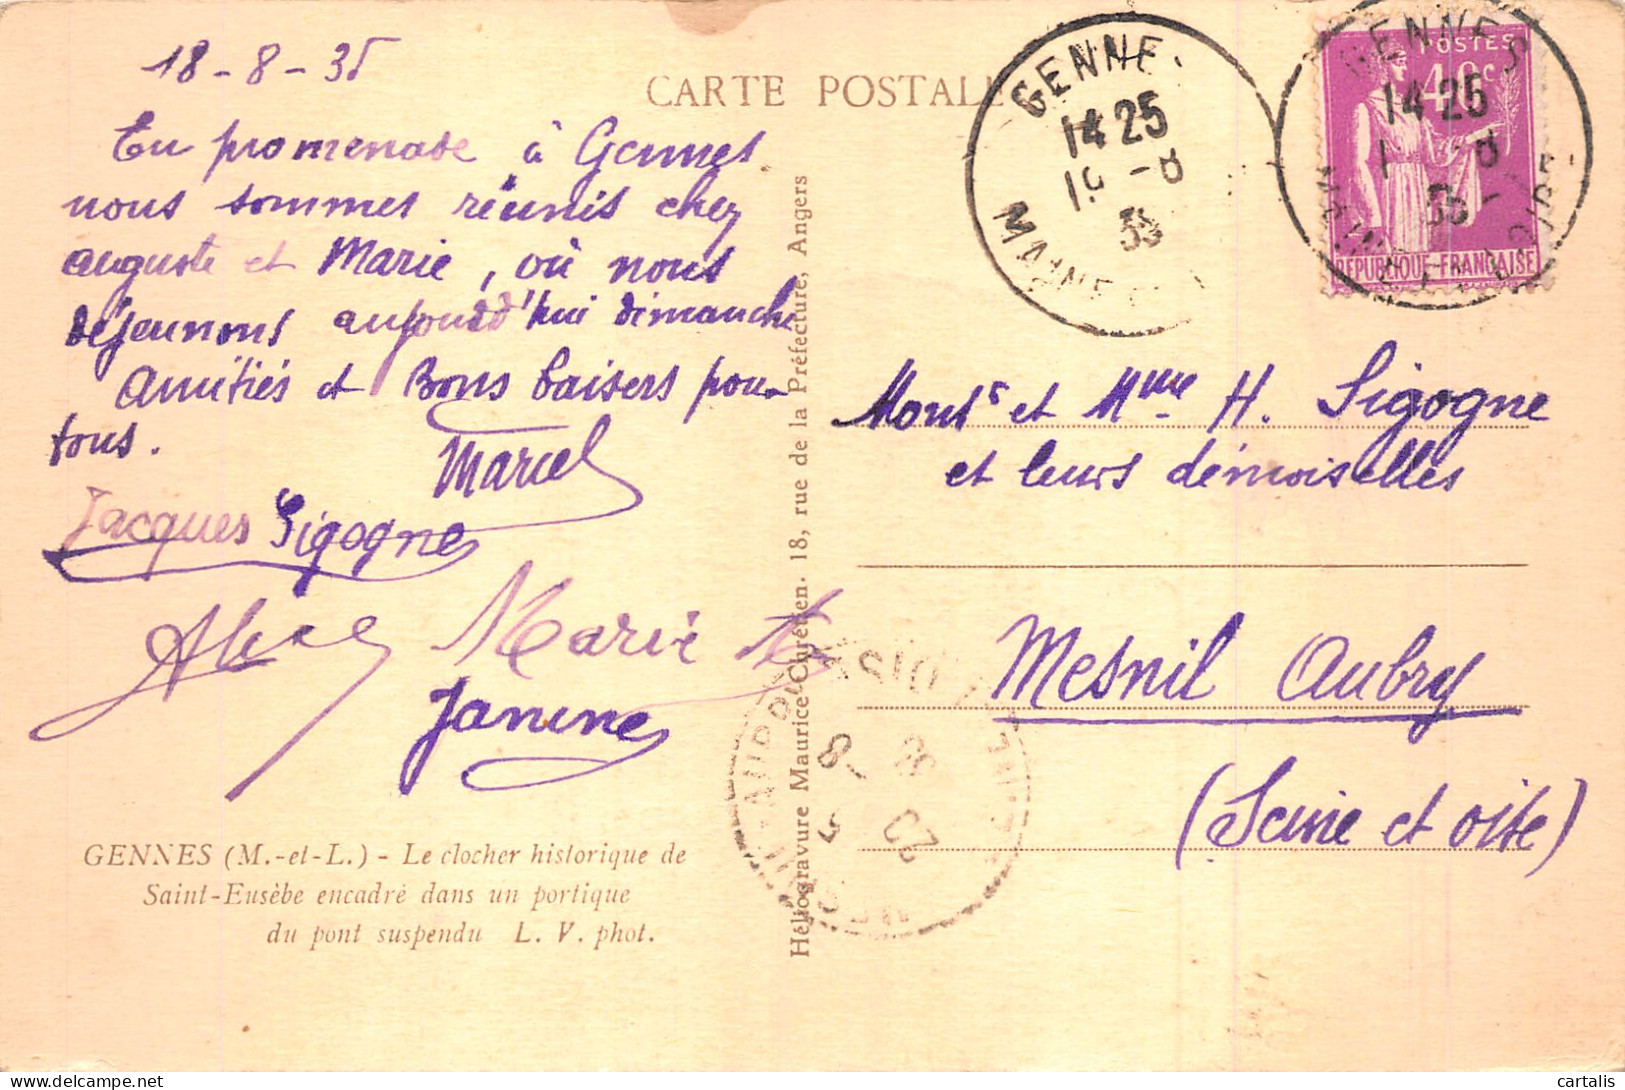 18-8-35
CARTE POSTALE
En promenade à Gennes
nous sommes réunis chez
auguste et Marie, où nous
déjeunons aujourd'hui dimanche
Amitiés et Bons baisers pour
tous.
Marcel
Jacques Sigogne
Marie
Janine
GENNES (M.-et-L.) - Le clocher historique de
Saint-Eusèbe encadré dans un portique
du pont suspendu L. V. phot.
Héliogravure Maurice Chrétien. 18, rue de la Préfecture, Angers
GENNES
14 25
-8
35
MAINE ET
POSTES
40c
REPUBLIQUE-FRANÇAISE
GENNES
14 25
8
35
MAINE ET LOIRE
Monsr et Mme H. Sigogne
et leurs demoiselles
Mesnil Aubry
(Seine et oise)
20
-8
35
cartalis